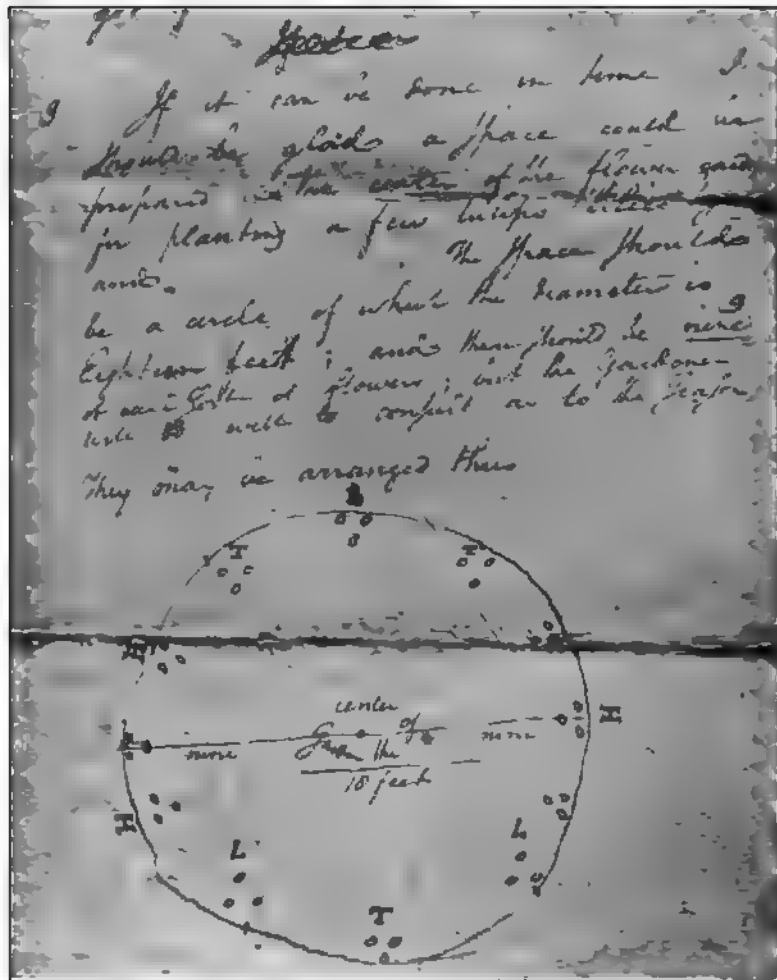 If it can be done in time I
should be glad a space could be
prepared in the center of the flower
for planting a few tulips
and. The space should
be a circle of which the diameter is
Eighteen feet; and there should be nine
of each sort of flowers; but the Gardener
will do well to consult as to the
They may be arranged thus
T T
center
nine of the nine H
18 feet
H
L L
T